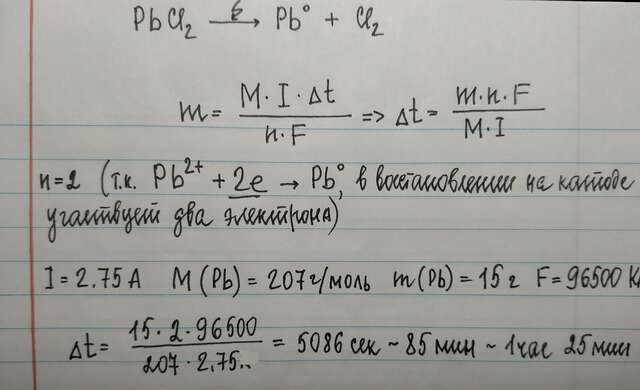 PbCl₂ →ē Pb° + Cl₂
m = M·I·Δt / n·F => Δt = m·n·F / M·I
n=2 (т.к. Pb²⁺ + 2e → Pb°, в восстановлении на катоде
участвует два электрона)
I = 2.75 А M (Pb) = 207 г/моль m (Pb) = 15 г F = 96500 Кл
Δt = 15·2·96500 / 207·2,75.. = 5086 сек ~ 85 мин ~ 1 час 25 мин